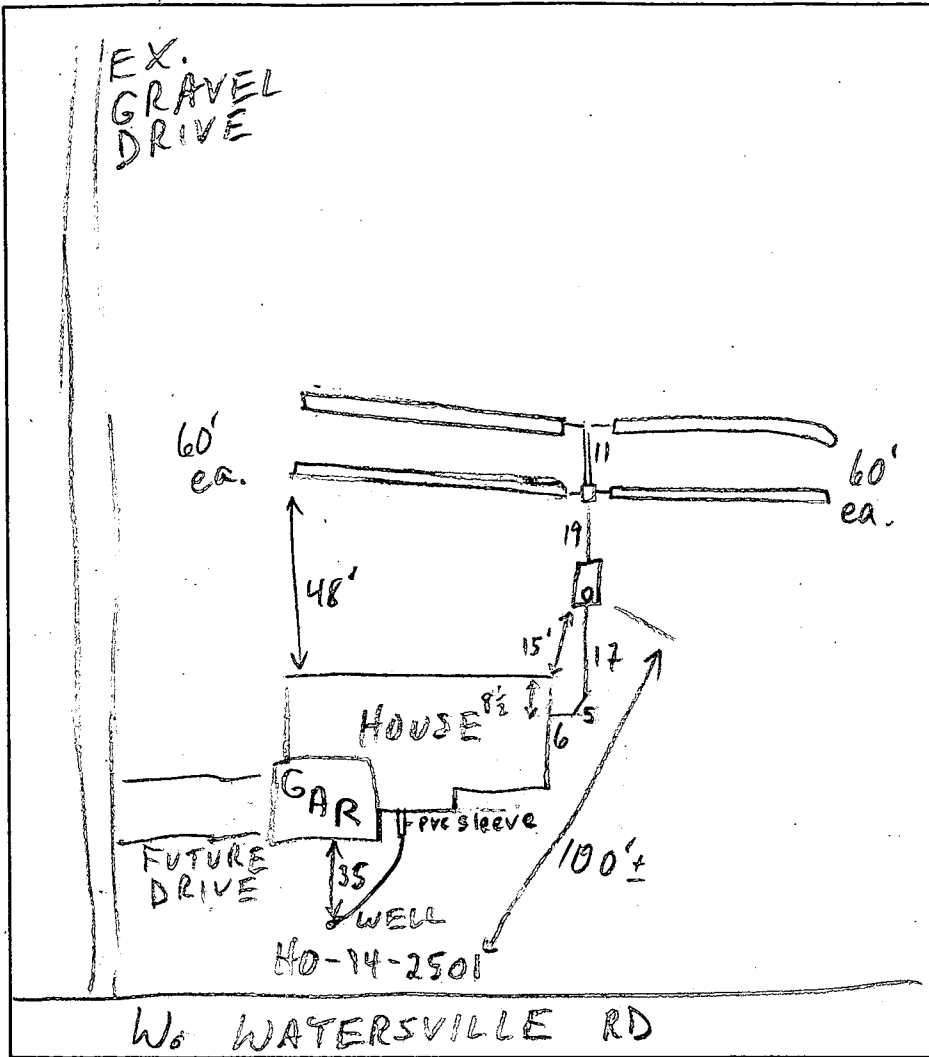 EX.
GRAVEL
DRIVE
60'
ea.
11
60'
ea.
19
48'
15'
17
8½
HOUSE
5
6
GAR
PVC sleeve
FUTURE
DRIVE
35
100'±
WELL
HO-94-2501
W. WATERSVILLE RD